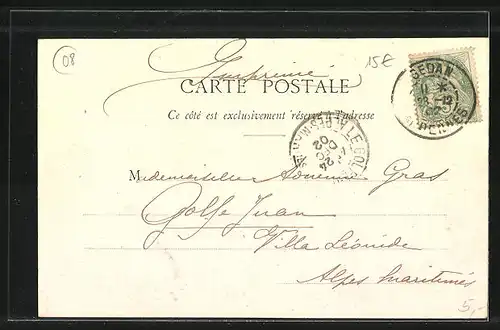 08
15€
Imprimé
CARTE POSTALE
Ce côté est exclusivement réservé à l'adresse
SEDAN
ARDENNES
LE GOLFE
24
DEC
02
Mademoiselle Gras
Golfe Juan
Villa Léonide
Alpes Maritimes
5,-